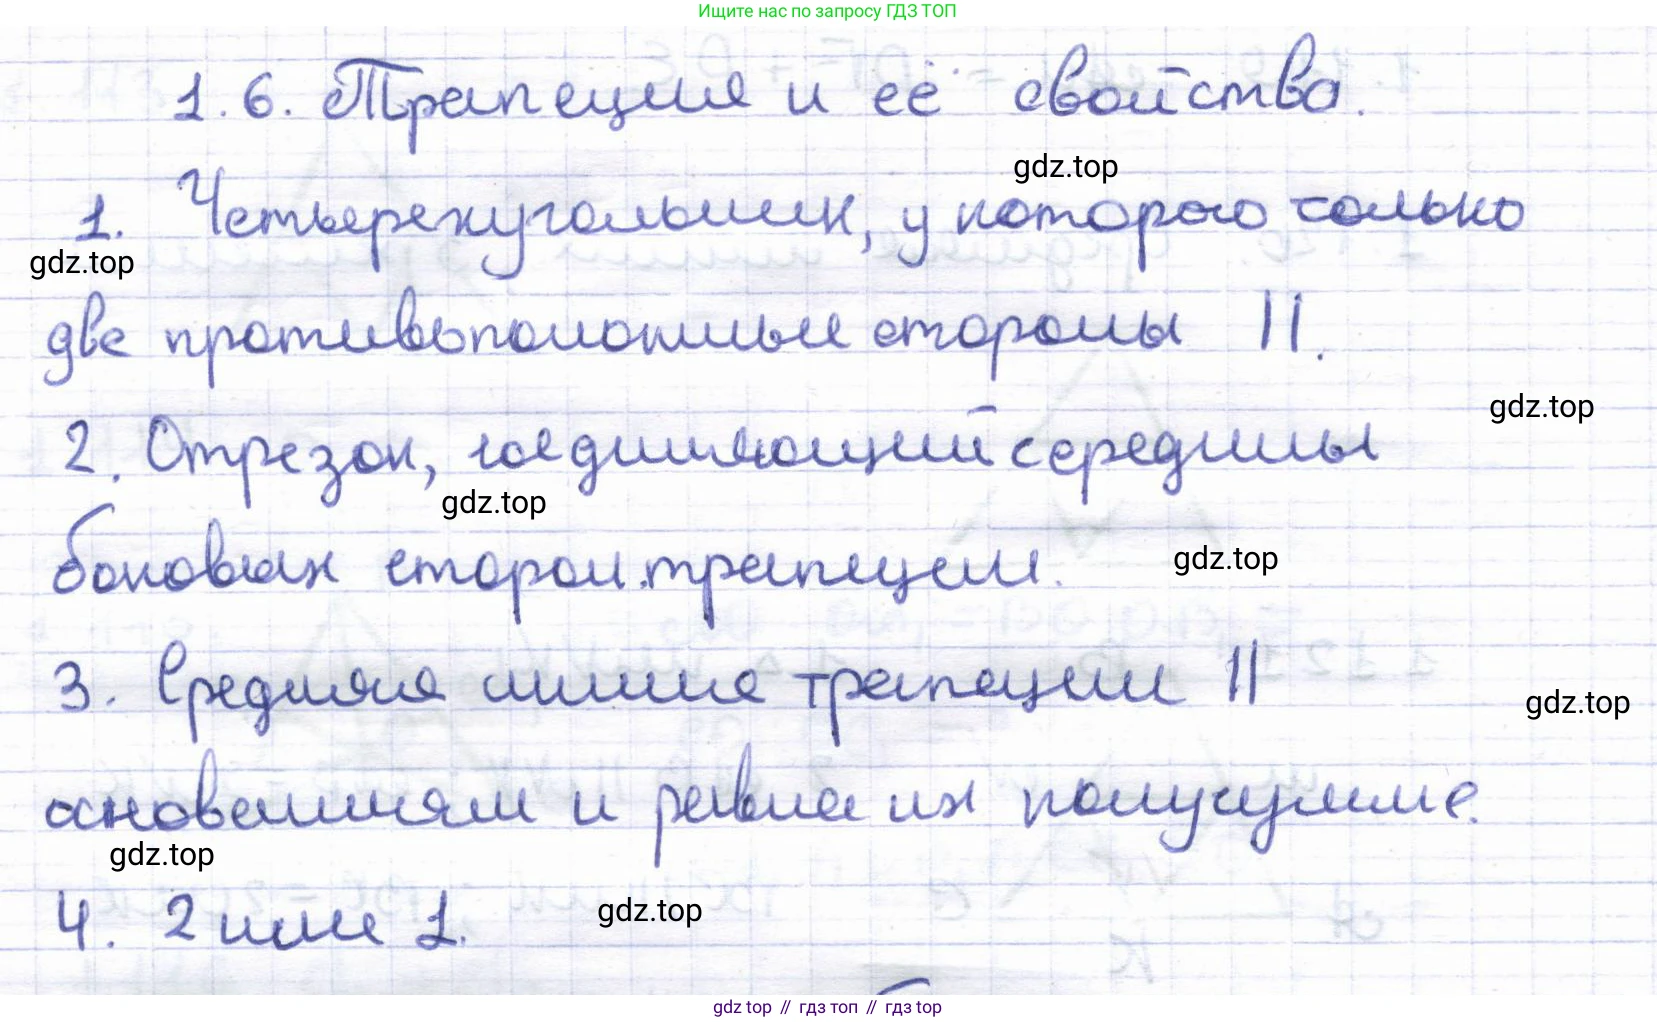 Ищите нас по запросу ГДЗ ТОП
1.6. Трапеция и её свойства.
gdz.top
1. Четырехугольник, у которого только
gdz.top
две противоположные стороны ||.
gdz.top
2. Отрезок, соединяющий середины
gdz.top
боковых сторон трапеции.
gdz.top
3. Средняя линия трапеции ||
gdz.top
основаниям и равна их полусумме.
gdz.top
4. 2 или 1.
gdz.top
gdz top // гдз топ // гдз top